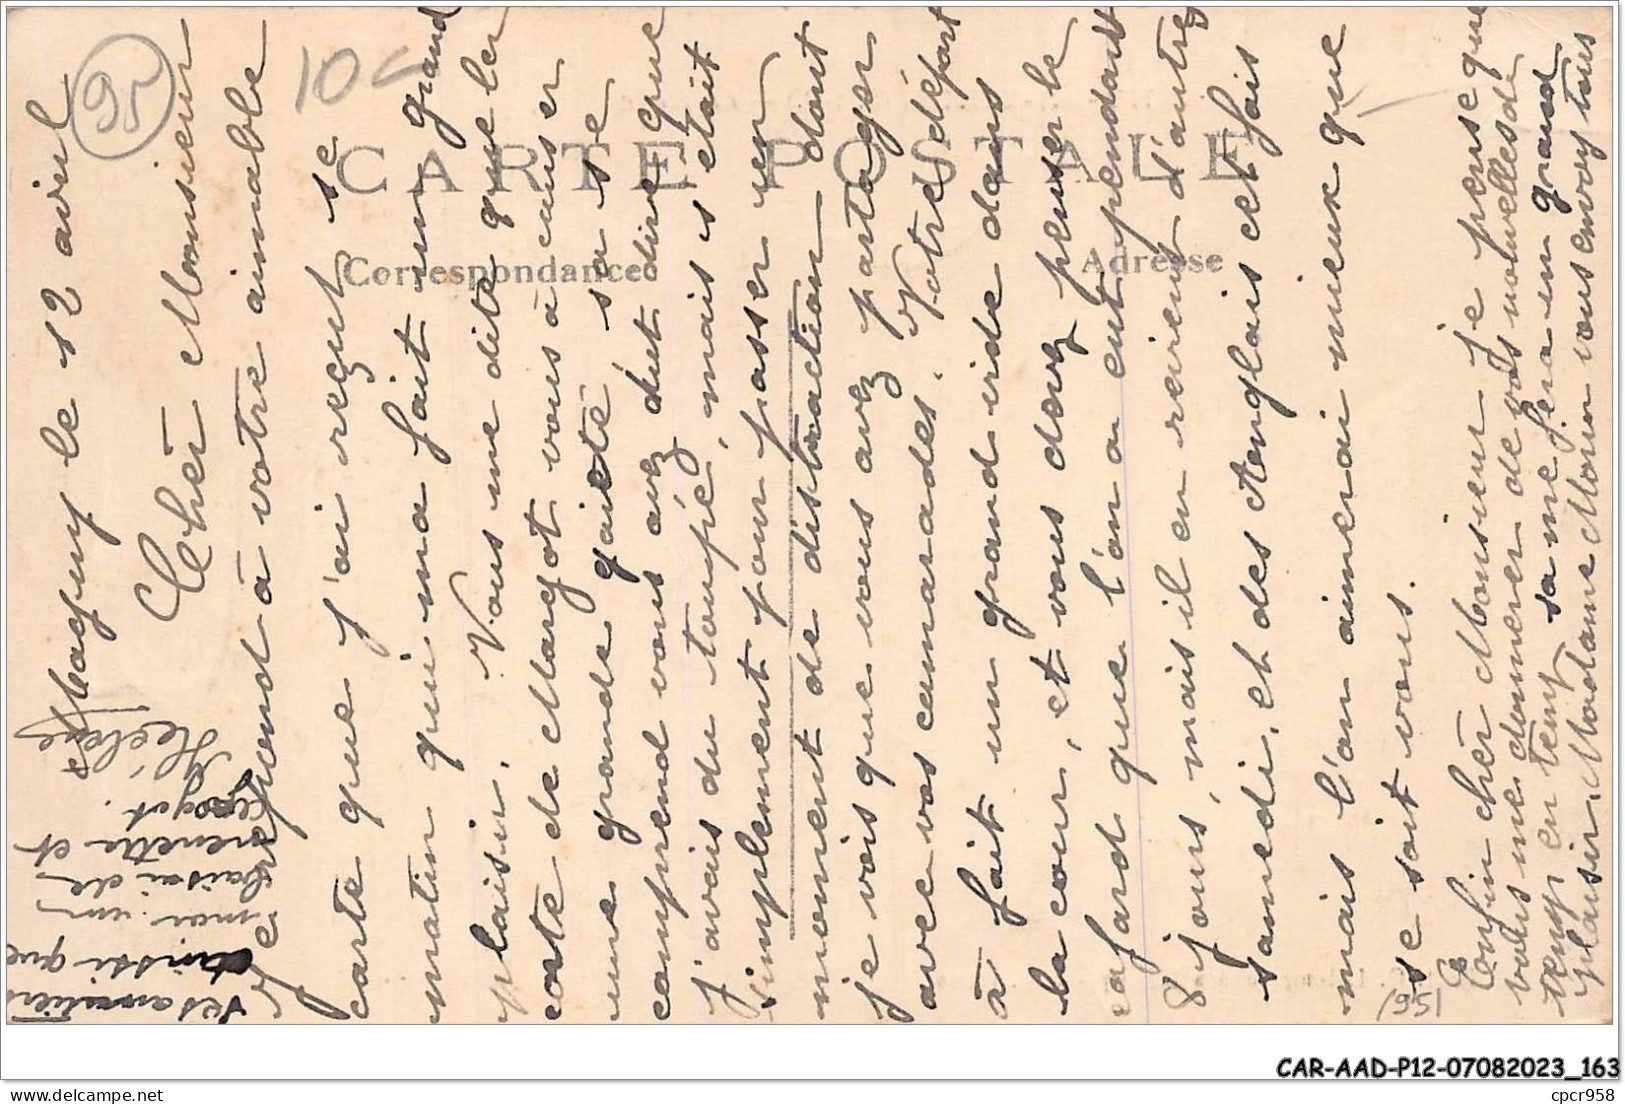 Magny le 12 avril
Cher Monsieur
Je répond à votre aimable
carte que j'ai reçut se
matin qui ma fait un grand
plaisir. Vous me dite que les
carte de Margot vous à causer
une grande gaieté sa se
comprend vous avez dut dire que
j'avais du toupé, mais s'était
simplement pour passer un
moment de distraction dont
je vois que vous avez partager
avec vos camarades. Votre départ
à fait un grand vide dans
la cour, et vous devez penser le
cafard que l'on a eut pendant
8 jours, mais il en revient d'autres
samedi, et des Anglais cet fois
mais l'on aimerai mieux que
se soit vous.
Enfin cher Monsieur je pense que
vous me donnerer de vos nouvelles de
temp en temp sa me fera un grand
plaisir, Madame Morin vous envoy tous
ses amitiers
ainsi que
moi un
baisai de
nenette et
Margot.
Hélène
95
10c
CARTE POSTALE
Correspondance
Adresse
(95)
CAR-AAD-P12-07082023_163
cpcr958